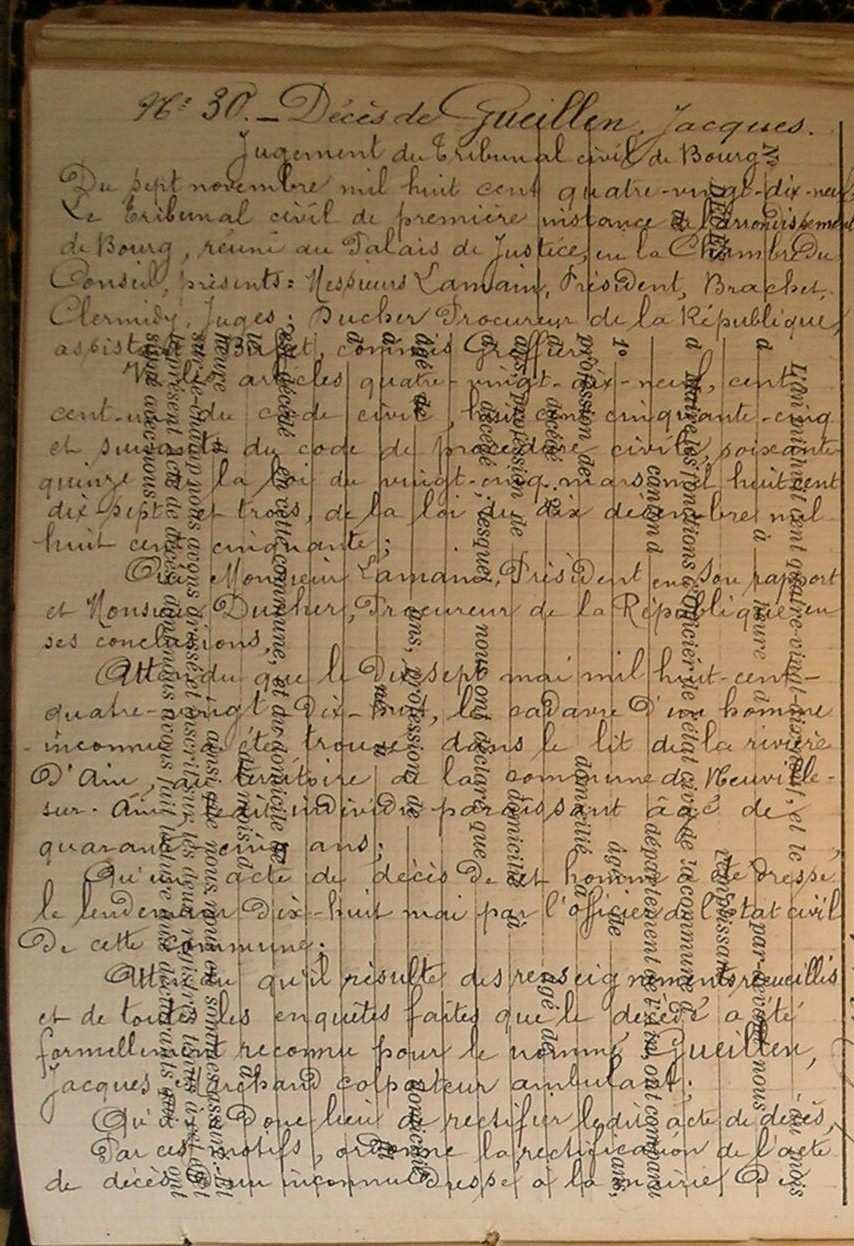 N° 30. — Décès de Gueillen, Jacques.
Jugement du Tribunal civil de Bourg
Du sept novembre mil huit cent quatre-vingt-dix-neuf,
Le Tribunal civil de première instance de l'arrondissement
de Bourg, réuni au Palais de Justice, en la Chambre du
Conseil, présents: Messieurs Lamain, Président, Brachet,
Clermidy, Juges; Ducher Procureur de la République,
assistés de commis Greffier
Vu les articles quatre-vingt-dix-neuf, cent
cent-un du code civil, huit cent cinquante-cinq
et suivants du code de procédure civile, soixante-
quinze de la loi du vingt-cinq mars mil huit cent
dix-sept et trois, de la loi du dix décembre mil
huit cent cinquante;
Oui Monsieur Lamain, Président en son rapport
et Monsieur Ducher, Procureur de la République en
ses conclusions,
Attendu que le dix-sept mai mil huit-cent-
quatre-vingt-dix-huit, le cadavre d'un homme
inconnu a été trouvé dans le lit de la rivière
D'Ain, au territoire de la commune de Neuville-
sur-Ain, individu paraissant âgé de
quarante cinq ans;
Qu'un acte de décès de cet homme a été dressé,
le lendemain dix-huit mai par l'officier de l'état civil
De cette commune;
Attendu qu'il résulte des renseignements recueillis
et de toutes les enquêtes faites que le décédé a été
formellement reconnu pour le nommé Gueillen,
Jacques marchand colporteur ambulant;
Qu'il y a donc lieu de rectifier ledit acte de décès,
Par ces motifs, ordonne la rectification de l'acte
de décès d'un inconnu dressé à la mairie de
N°
DÉCÈS
L'an mil huit cent quatre-vingt-dix-neuf, et le du mois
d à heure d par-devant nous
remplissant
à Maire les fonctions d'officier de l'état civil de la commune d
canton d département de l'Ain, ont comparu
1° âgé de ans,
profession de domicilié à
décédé âgé de
ans, profession de domicilié à
décédé; lesquels nous ont déclaré que
âgé de ans, profession de domicilié
à né à
est décédé en cette commune, et au domicile de
le du mois d à
heure ainsi que nous nous en sommes assuré. Et
sur-le-champ nous avons dressé et inscrit sur les deux registres
le présent acte de décès, dont nous avons fait lecture aux déclarants qui ont
signé avec nous